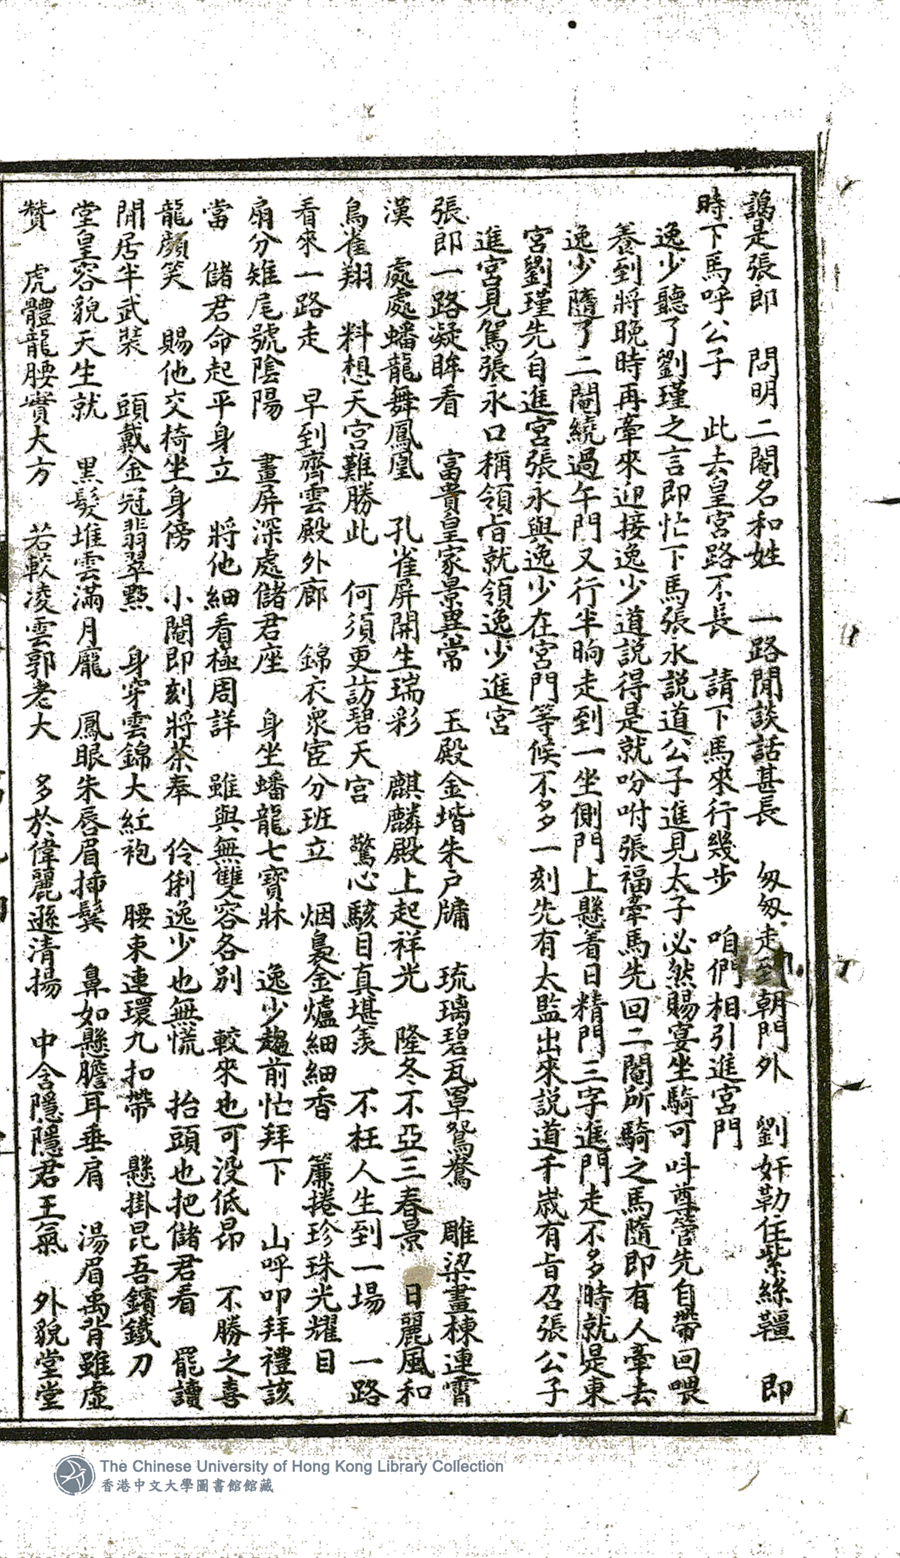 謁是張郎　問明二閹名和姓　一路閒談話甚長　匆匆走到朝門外　劉奸勒住紫絲韁　即
時下馬呼公子　此去皇宮路不長　請下馬來行幾步　咱們相引進宮門
逸少聽了劉瑾之言即忙下馬張永説道公子進見太子必然賜宴坐騎可呌尊管先自帶回喂
養到將晚時再牽來迎接逸少道説得是就吩咐張福牽馬先回二閹所騎之馬隨即有人牽去
逸少隨了二閹繞過午門又行半晌走到一坐側門上懸着日精門三字進門走不多時就是東
宮劉瑾先自進宮張永與逸少在宮門等候不多一刻先有太監出來説道千歲有旨召張公子
進宮見駕張永口稱領旨就領逸少進宮
張郎一路凝眸看　富貴皇家景異常　玉殿金堦朱戶牗　琉璃碧瓦罩鴛鴦　雕梁畫棟連霄
漢　處處蟠龍舞鳳凰　孔雀屏開生瑞彩　麒麟殿上起祥光　隆冬不亞三春景　日麗風和
鳥雀翔　料想天宮難勝此　何須更訪碧天宮　驚心駭目真堪羨　不枉人生到一場　一路
看來一路走　早到齊雲殿外廊　錦衣衆宦分班立　烟裊金爐細細香　簾捲珍珠光耀目
扇分雉尾號陰陽　畫屏深處儲君座　身坐蟠龍七寶牀　逸少趨前忙拜下　山呼叩拜禮該
當　儲君命起平身立　將他細看極周詳　雖與無雙容各別　較來也可没低昂　不勝之喜
龍顏笑　賜他交椅坐身傍　小閹即刻將茶奉　伶俐逸少也無慌　抬頭也把儲君看　罷讀
閒居半武裝　頭戴金冠翡翠點　身穿雲錦大紅袍　腰束連環九扣帶　懸掛昆吾鑌鐵刀
堂皇容貌天生就　黑髮堆雲滿月龐　鳳眼朱唇眉挿鬓　鼻如懸膽耳垂肩　湯眉禹背雖虛
贊　虎體龍腰實大方　若較凌雲郭老大　多於偉麗遜清揚　中含隱隱君王氣　外貌堂堂
The Chinese University of Hong Kong Library Collection
香港中文大學圖書館館藏